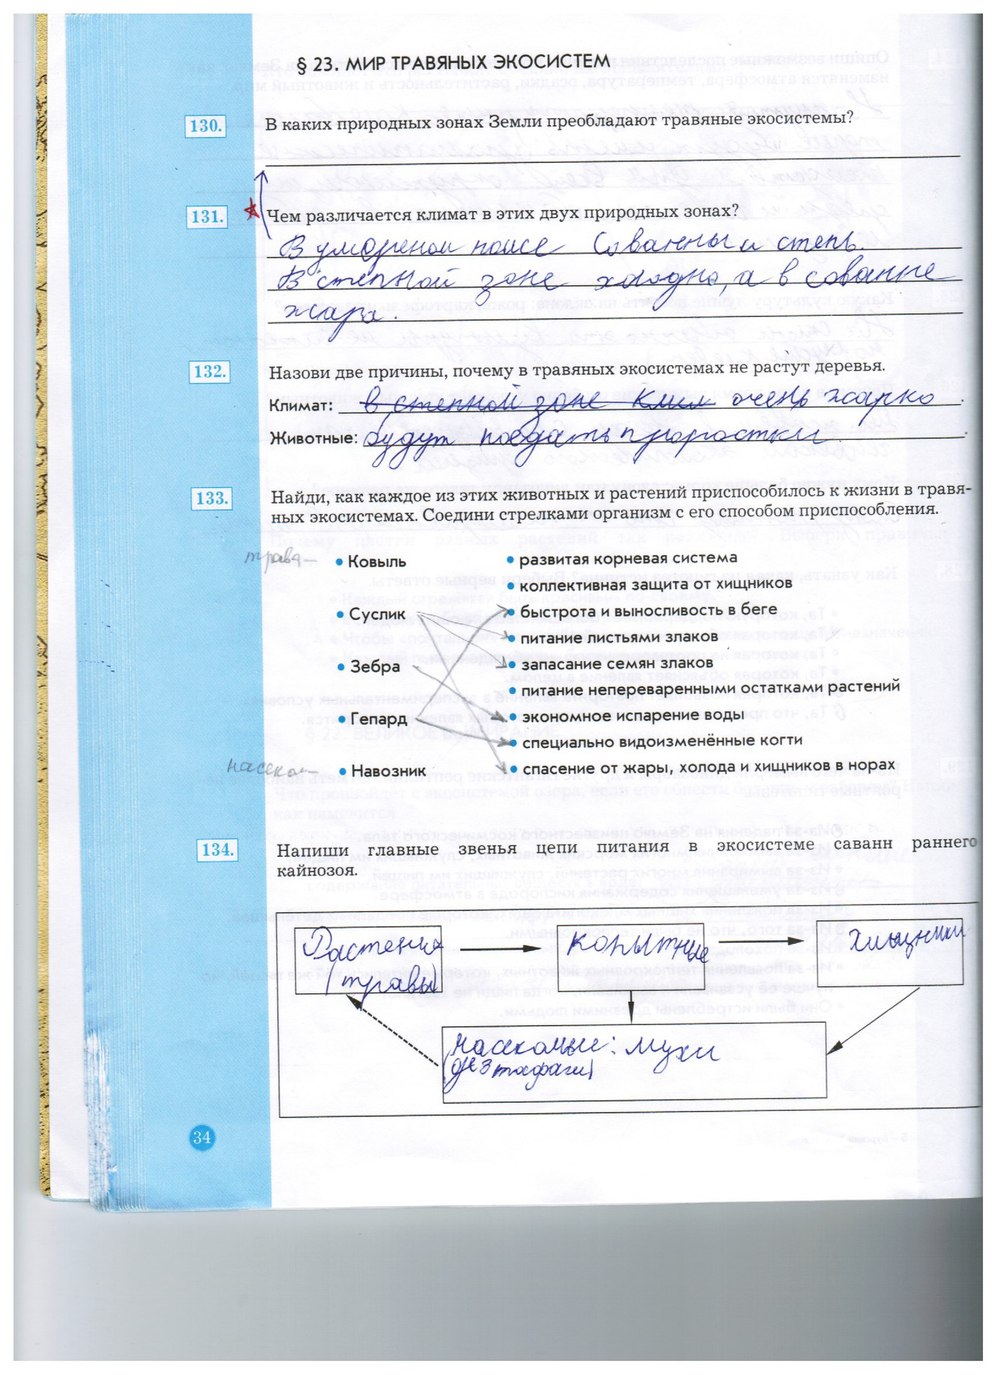 § 23. МИР ТРАВЯНЫХ ЭКОСИСТЕМ
130. В каких природных зонах Земли преобладают травяные экосистемы?
131. Чем различается климат в этих двух природных зонах?
В умереном поясе Саванны и степь.
В степной зоне холодно, а в саванне
жара.
132. Назови две причины, почему в травяных экосистемах не растут деревья.
Климат: в степной зоне клим очень жарко
Животные: будут поедать проростки.
133. Найди, как каждое из этих животных и растений приспособилось к жизни в травя-
ных экосистемах. Соедини стрелками организм с его способом приспособления.
трава— • Ковыль
• Суслик
• Зебра
• Гепард
насеком— • Навозник
• развитая корневая система
• коллективная защита от хищников
• быстрота и выносливость в беге
• питание листьями злаков
• запасание семян злаков
• питание непереваренными остатками растений
• экономное испарение воды
• специально видоизменённые когти
• спасение от жары, холода и хищников в норах
134. Напиши главные звенья цепи питания в экосистеме саванн раннего
кайнозоя.
Растения
(травы)
копытные
хищники
насекомые: мухи
34